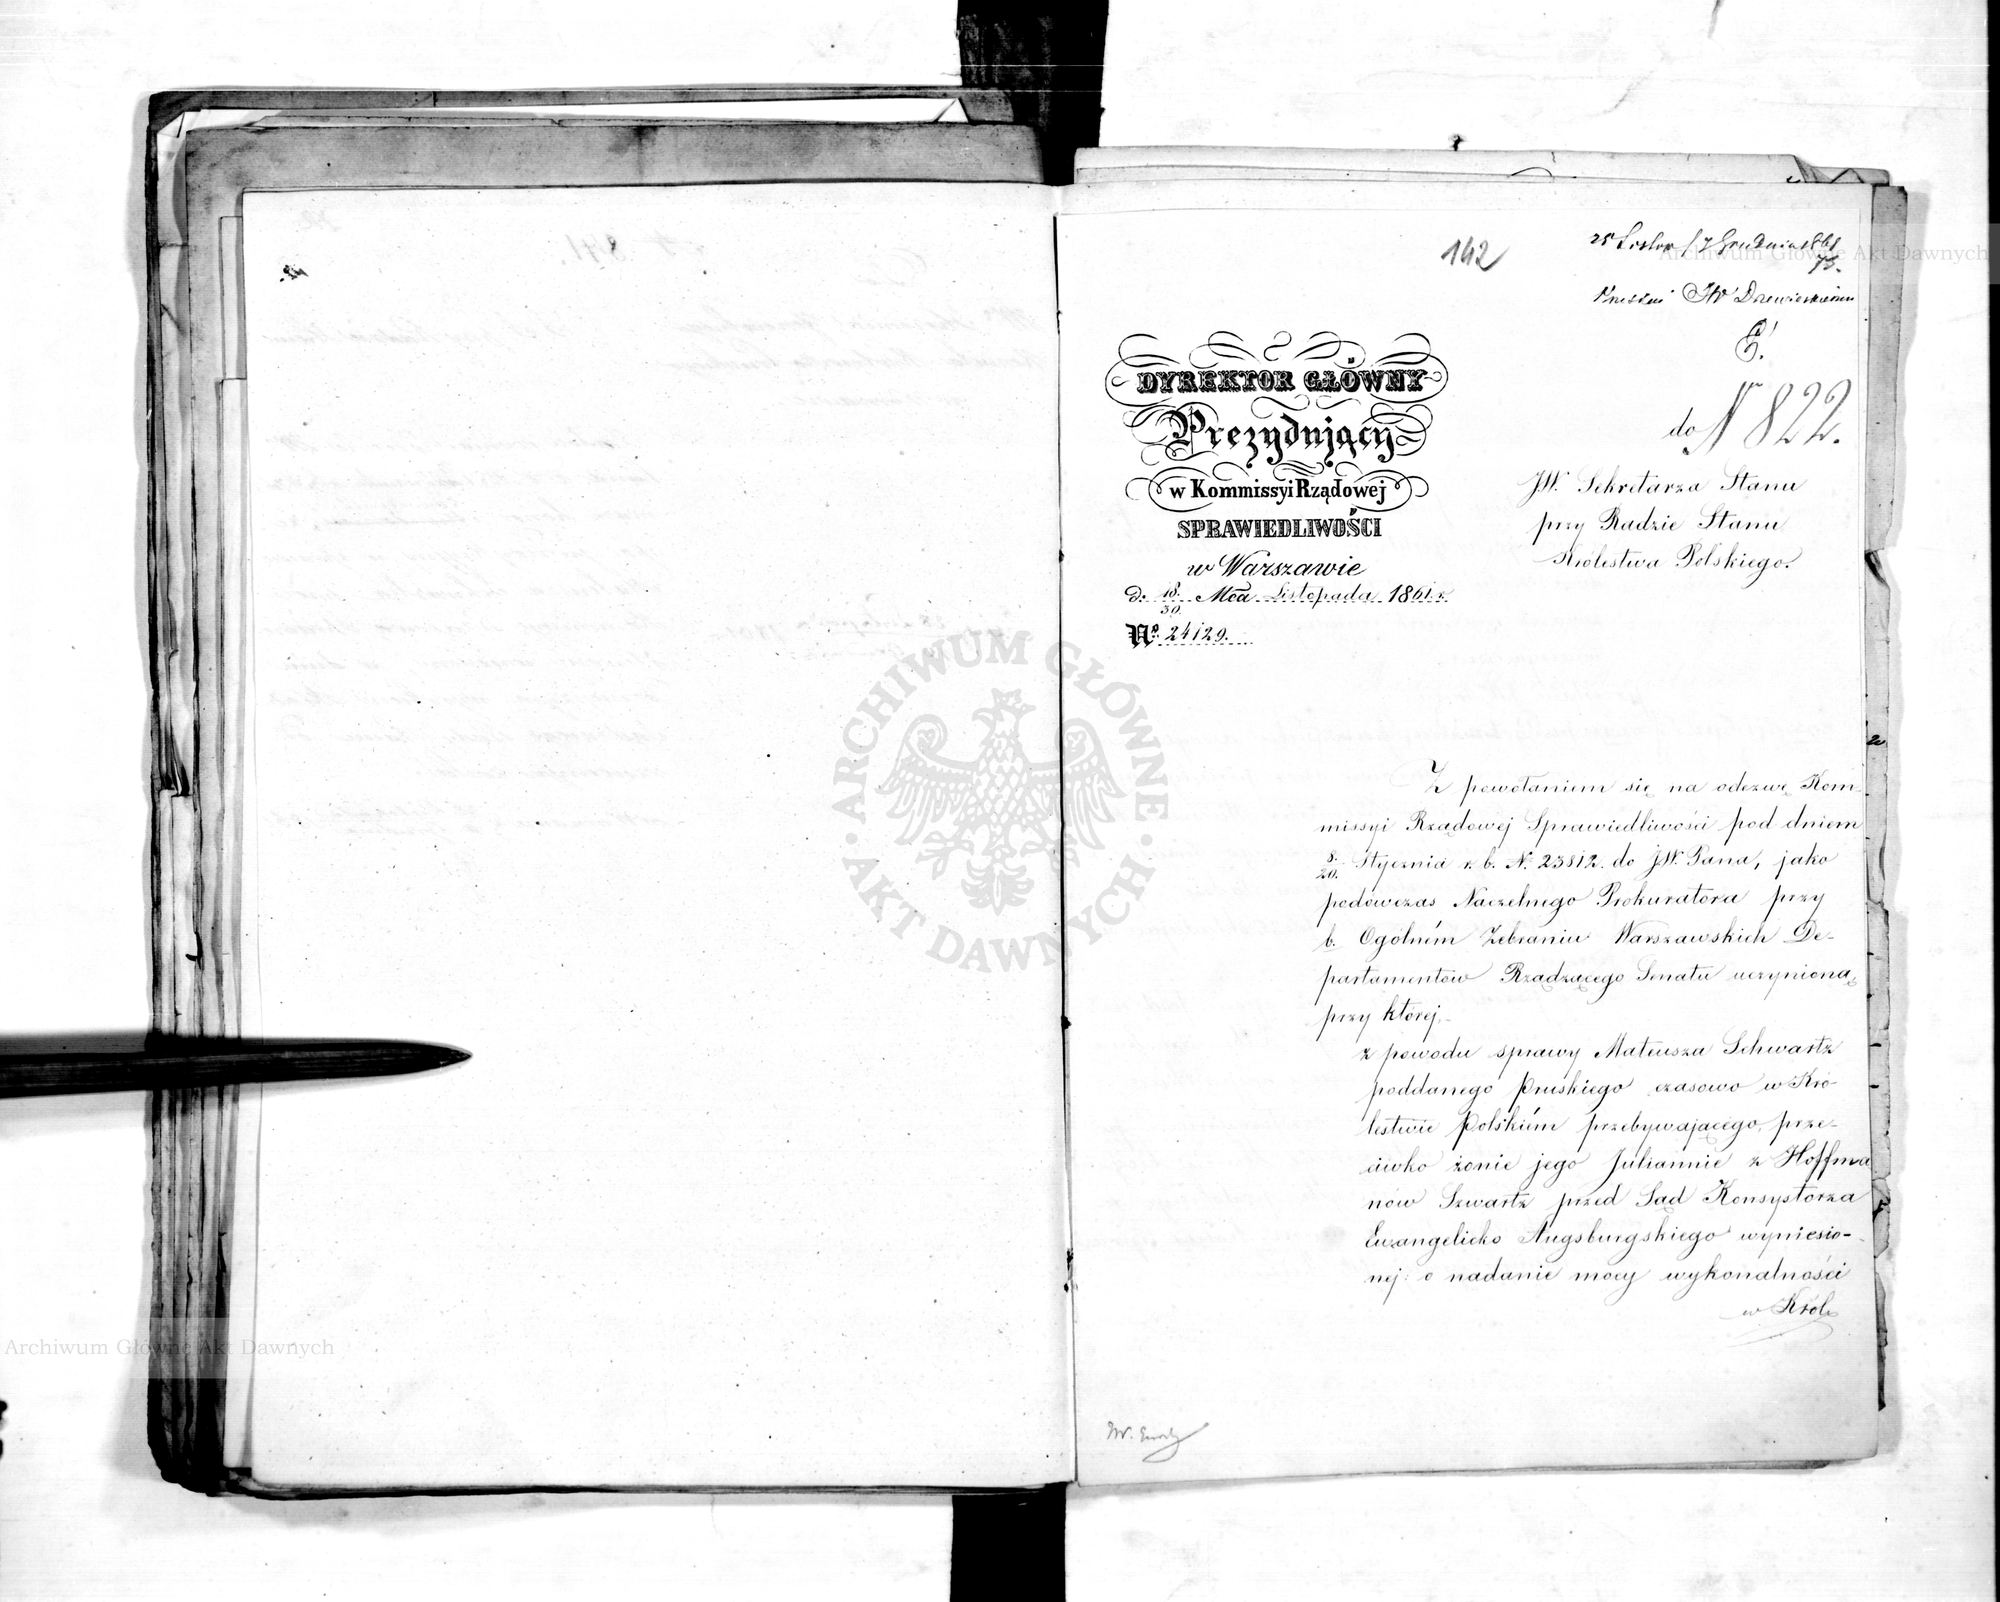 142
25 Listop / 7 Grudnia 1861
75.
JW Drzewieckiemu
do N 822.
DYREKTOR GŁÓWNY
Prezydujący
w Kommissyi Rządowej
SPRAWIEDLIWOŚCI
w Warszawie
d. 18./30. Mca Listopada 1861 r.
No. 24129.
JW. Sekretarza Stanu
przy Radzie Stanu
Królestwa Polskiego.
Z powołaniem się na odezwę Kom-
missyi Rządowej Sprawiedliwości pod dniem
8./20. Stycznia r. b. N. 23812. do JW. Pana, jako
podówczas Naczelnego Prokuratora przy
b. Ogólném Zebraniu Warszawskich De-
partamentów Rządzącego Senatu uczynioną,
przy której,-
z powodu sprawy Mateusza Schwartz
poddanego Pruskiego czasowo w Kró
lestwie Polskiém przebywającego, prze-
ciwko żonie jego Juliannie z Hoffma
nów Szwartz przed Sąd Konsystorza
Ewangelicko Augsburgskiego wyniesio-
nej: o nadanie mocy wykonalności
w Król
ARCHIWUM GŁÓWNE AKT DAWNYCH
Archiwum Główne Akt Dawnych
Archiwum Główne Akt Dawnych